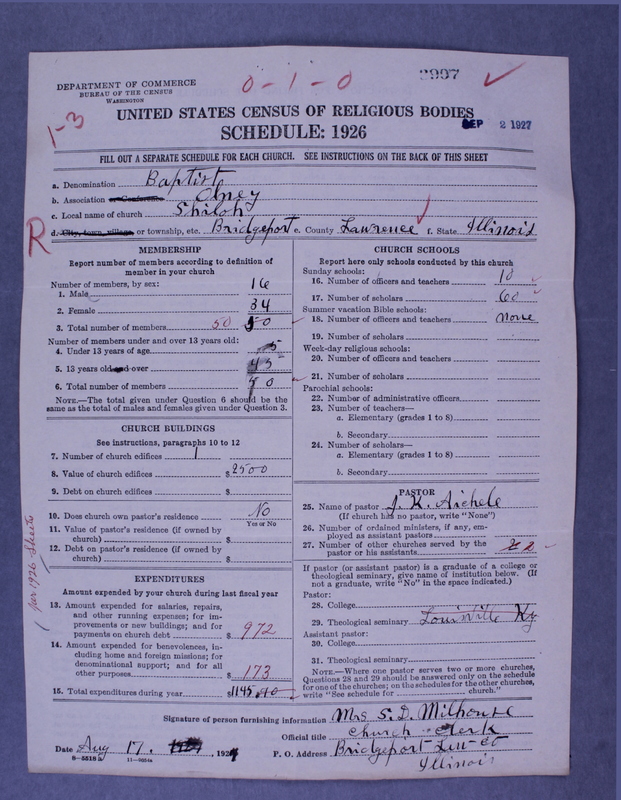 DEPARTMENT OF COMMERCE
BUREAU OF THE CENSUS
WASHINGTON
0-1-0
2997
1-3
UNITED STATES CENSUS OF RELIGIOUS BODIES
SEP 2 1927
SCHEDULE: 1926
FILL OUT A SEPARATE SCHEDULE FOR EACH CHURCH. SEE INSTRUCTIONS ON THE BACK OF THIS SHEET
a. Denomination Baptist
b. Association or Conference Olney
c. Local name of church Shiloh
d. City, town, village, or township, etc. Bridgeport e. County Lawrence f. State Illinois
R
MEMBERSHIP
Report number of members according to definition of
member in your church
Number of members, by sex:
1. Male 16
2. Female 34
3. Total number of members 50 50
Number of members under and over 13 years old:
4. Under 13 years of age 5
5. 13 years old and over 45
6. Total number of members 50
NOTE.—The total given under Question 6 should be the
same as the total of males and females given under Question 3.
CHURCH BUILDINGS
See instructions, paragraphs 10 to 12
7. Number of church edifices 1
8. Value of church edifices $2500
9. Debt on church edifices $
10. Does church own pastor's residence No
Yes or No
11. Value of pastor's residence (if owned by
church) $
12. Debt on pastor's residence (if owned by
church) $
for 1926 Sheets
EXPENDITURES
Amount expended by your church during last fiscal year
13. Amount expended for salaries, repairs,
and other running expenses; for im-
provements or new buildings; and for
payments on church debt $972
14. Amount expended for benevolences, in-
cluding home and foreign missions; for
denominational support; and for all
other purposes $173
15. Total expenditures during year $1145.40
CHURCH SCHOOLS
Report here only schools conducted by this church
Sunday schools:
16. Number of officers and teachers 10
17. Number of scholars 60
Summer vacation Bible schools:
18. Number of officers and teachers none
19. Number of scholars
Week-day religious schools:
20. Number of officers and teachers
21. Number of scholars
Parochial schools:
22. Number of administrative officers
23. Number of teachers—
a. Elementary (grades 1 to 8)
b. Secondary
24. Number of scholars—
a. Elementary (grades 1 to 8)
b. Secondary
PASTOR
25. Name of pastor J. K. Aichele
(If church has no pastor, write "None")
26. Number of ordained ministers, if any, em-
ployed as assistant pastors
27. Number of other churches served by the
pastor or his assistants 2
If pastor (or assistant pastor) is a graduate of a college or
theological seminary, give name of institution below. (If
not a graduate, write "No" in the space indicated.)
Pastor:
28. College
29. Theological seminary Louisville Ky
Assistant pastor:
30. College
31. Theological seminary
NOTE.—Where one pastor serves two or more churches,
Questions 28 and 29 should be answered only on the schedule
for one of the churches; on the schedules for the other churches,
write "See schedule for church."
Signature of person furnishing information Mrs S. D. Milhouse
Official title Church Clerk
Date Aug 17, 192
P. O. Address Bridgeport Law Co
Illinois
8-5518a 11-9554a